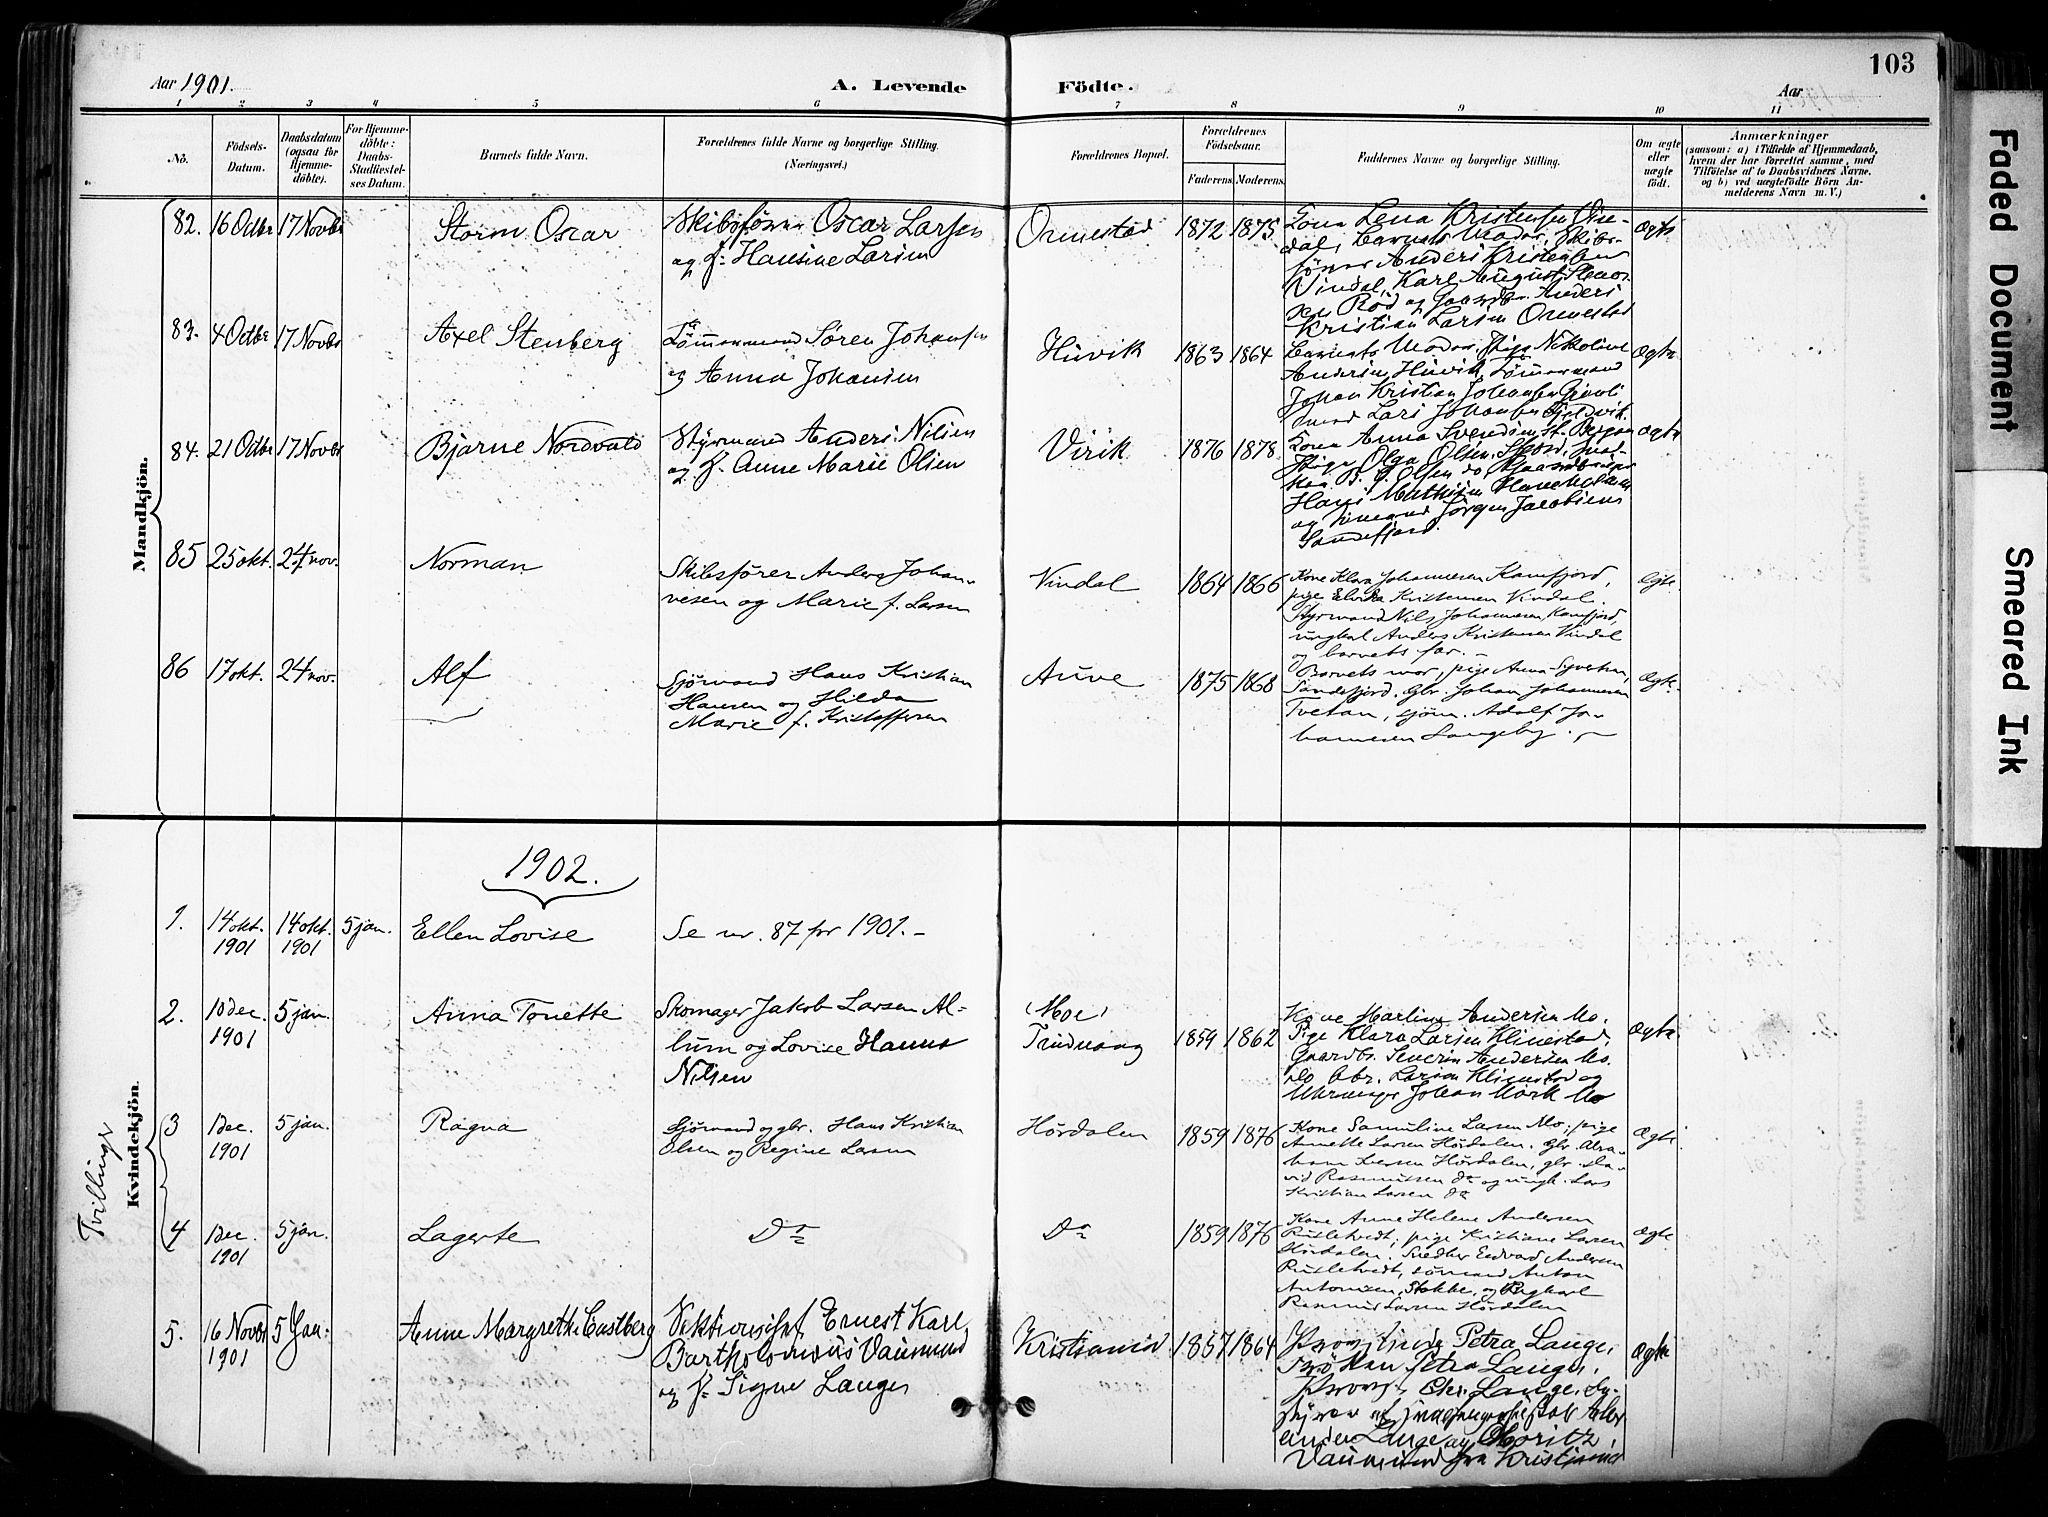 103
Aar 1901.
A. Levende
Födte.
Aar
1 2 3 4 5 6 7 8 9 10 11
No.
Födsels-
Datum.
Daabsdatum
(ogsaa for
Hjemme-
döbte).
For Hjemme-
döbte:
Daabs-
Stadfæstel-
ses Datum.
Barnets fulde Navn.
Forældrenes fulde Navne og borgerlige Stilling.
(Næringsvei.)
Forældrenes Bopæl.
Forældrenes
Födselsaar.
Faderens. Moderens.
Faddernes Navne og borgerlige Stilling.
Om ægte
eller
uægte
födt.
Anmærkninger
(saasom: a) i Tilfælde af Hjemmedaab,
hvem der har forrettet samme, med
Tilföielse af to Daabsvidners Navne,
og b) ved uægtefödte Börn An-
melderens Navn m. V.)
Mandkjön.
82. 16 Octbr 17 Novbr
Storm Oscar
Skibsfører Oscar Larsen
og f. Hansine Larsen
Ormestad
1872 1875
Kona Lena Kristensen
dal, Barnets Moder, Skibs-
fører Anders Kristensen
Vindal, Karl August
Rød og Gaardbr. Anders
Kristian Larsen Ormestad
Ægte
83. 4 Octbr 17 Novbr
Axel Stenberg
Tømmermand Søren Johansen
og Anna Johansen
Huvik
1863 1864
Barnets Moder, Pige Nikoline
Andersen Huvik, Tømmermand
Johan Kristian Johansen
Lars Johansen
Ægte
84. 21 Octbr 17 Novbr
Bjarne Nordvald
Styrmand Anders Nilsen
og f. Anne Marie Olsen
Virik
1876 1878
Kona Anna Svendsen St. Bergan
Pige Olga Olsen
Olsen do
Hans Mathisen
og Sømand Jørgen Jacobsen
Sandefjord.
Ægte
85 25 okt. 24 nov.
Norman
Skibsfører Anders Johan-
nesen og Marie f. Larsen
Vindal
1864 1866
Kone Klara Johannesen Kamfjord,
pige Elvira Kristensen Vindal.
Styrmand Nils Johannesen Kamfjord,
ungkal Anders Kristensen Vindal
og barnets far. –
Ægte.
86 17 okt. 24 nov.
Alf
Sjømand Hans Kristian
Hansen og Hilda
Marie f. Kristoffersen
Auve
1875 1868
Barnets mor, pige Anna Syvertsen,
Sandefjord. Gbr. Johan Johannesen
Tvetan, sjøm. Adolf Jo-
hannesen Langeby. –
Ægte.
Kvindekjön.
Tvillinger
1902.
1. 14 okt. 1901 14 okt. 1901 5 jan.
Ellen Lovise
Se nr. 87 for 1901. –
2. 10 Dec. 1901 5 jan.
Anna Tonette
Skomager Jakob Larsen Al-
lum og Lovise Hanna
Nilsen
Moe,
Tridvang
1859 1862
Kone Marline Andersen Mo.
Pige Klara Larsen Klinestad,
Gaardbr. Severin Andersen Mo.
do Abr. Larsen Klinestad og
Uhrmager Johan Mørk Mo
Ægte
3 1 Dec. 1901 5 jan.
Ragna
Sjømand og gbr. Hans Kristian
Olsen og Regine Larsen
Hørdalen
1859 1876
Kone Samuline Larsen Mo, pige
Anette Larsen Hørdalen, gbr. Abra-
ham Iversen Hørdalen, gbr. Da-
vid Rasmussen do og ungk. Lars
Kristian Larsen do
Ægte
4 1 Dec. 1901 5 jan.
Lagerte
Do
Do
1859 1876
Kone Anne Helene Andersen
pige Kristiane Larsen
Hørdalen. Snedker Edvard Andersen
sømand Anton
Antonisen, Stokke, og Ungkarl
Rasmus Larsen Hørdalen
Ægte
5. 16 Novbr 1901 5 Jan:
Anne Margrethe Castberg
Sektionschef Ernest Karl
Bartholomæus Vaumund
og f. Signe Lange
Kristiania
1857 1864
Provstinde Petra Lange,
Frøken Petra Lange,
Provst Chr. Lange, Be-
styrer
ander Lange og Moritz
fra Kristiania
Ægte
Faded Document
Smeared Ink